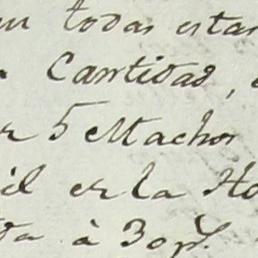 en todas estas
Cantidad,
r 5 Machos
il es la Ho
ta à 30 p.s